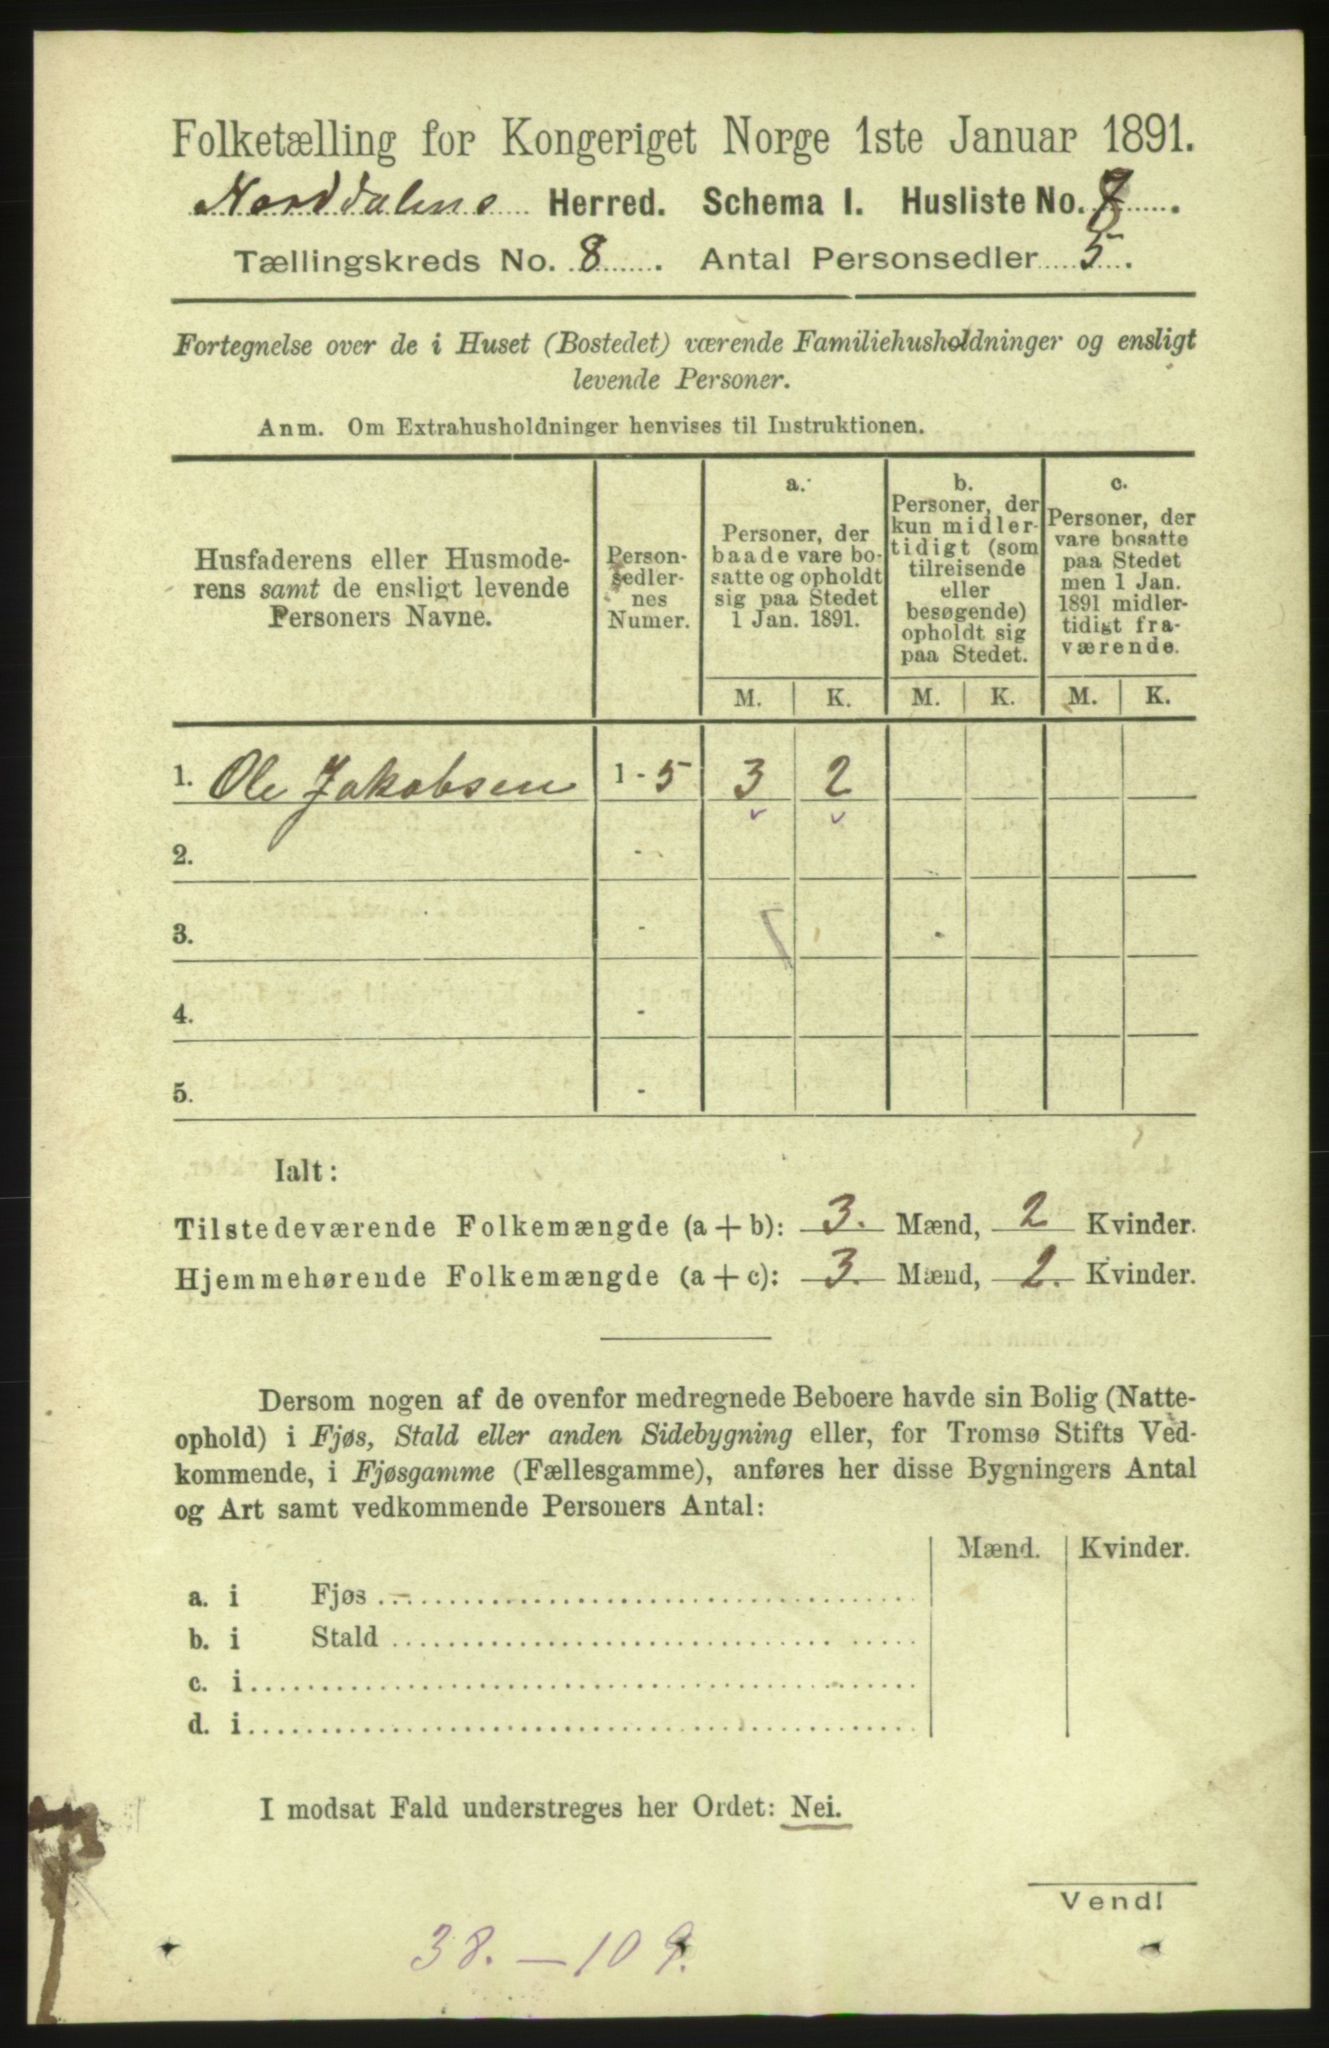 Folketælling for Kongeriget Norge 1ste Januar 1891.
Norddalens Herred. Schema I. Husliste No. .
Tællingskreds No. 8 . Antal Personsedler 5 .
Fortegnelse over de i Huset (Bostedet) værende Familiehusholdninger og ensligt
levende Personer.
Anm. Om Extrahusholdninger henvises til Instruktionen.
Husfaderens eller Husmode-
rens samt de ensligt levende
Personers Navne.
Person-
sedler-
nes
Numer.
a.
Personer, der
baade vare bo-
satte og opholdt
sig paa Stedet
1 Jan. 1891.
b.
Personer, der
kun midler-
tidigt (som
tilreisende
eller
besøgende)
opholdt sig
paa Stedet.
c.
Personer, der
vare bosatte
paa Stedet
men 1 Jan.
1891 midler-
tidigt fra-
værende.
M. K. M. K. M. K.
1. Ole Jakobsen 1 - 5 3 2
2. -
3. -
4. -
5. -
Ialt:
Tilstedeværende Folkemængde (a + b): 3. Mænd, 2 Kvinder.
Hjemmehørende Folkemængde (a + c): 3. Mænd, 2. Kvinder.
Dersom nogen af de ovenfor medregnede Beboere havde sin Bolig (Natte-
ophold) i Fjøs, Stald eller anden Sidebygning eller, for Tromsø Stifts Ved-
kommende, i Fjøsgamme (Fællesgamme), anføres her disse Bygningers Antal
og Art samt vedkommende Personers Antal:
Mænd. Kvinder.
a. i Fjøs
b. i Stald
c. i
d. i
I modsat Fald understreges her Ordet: Nei.
Vend!
38. — 109.